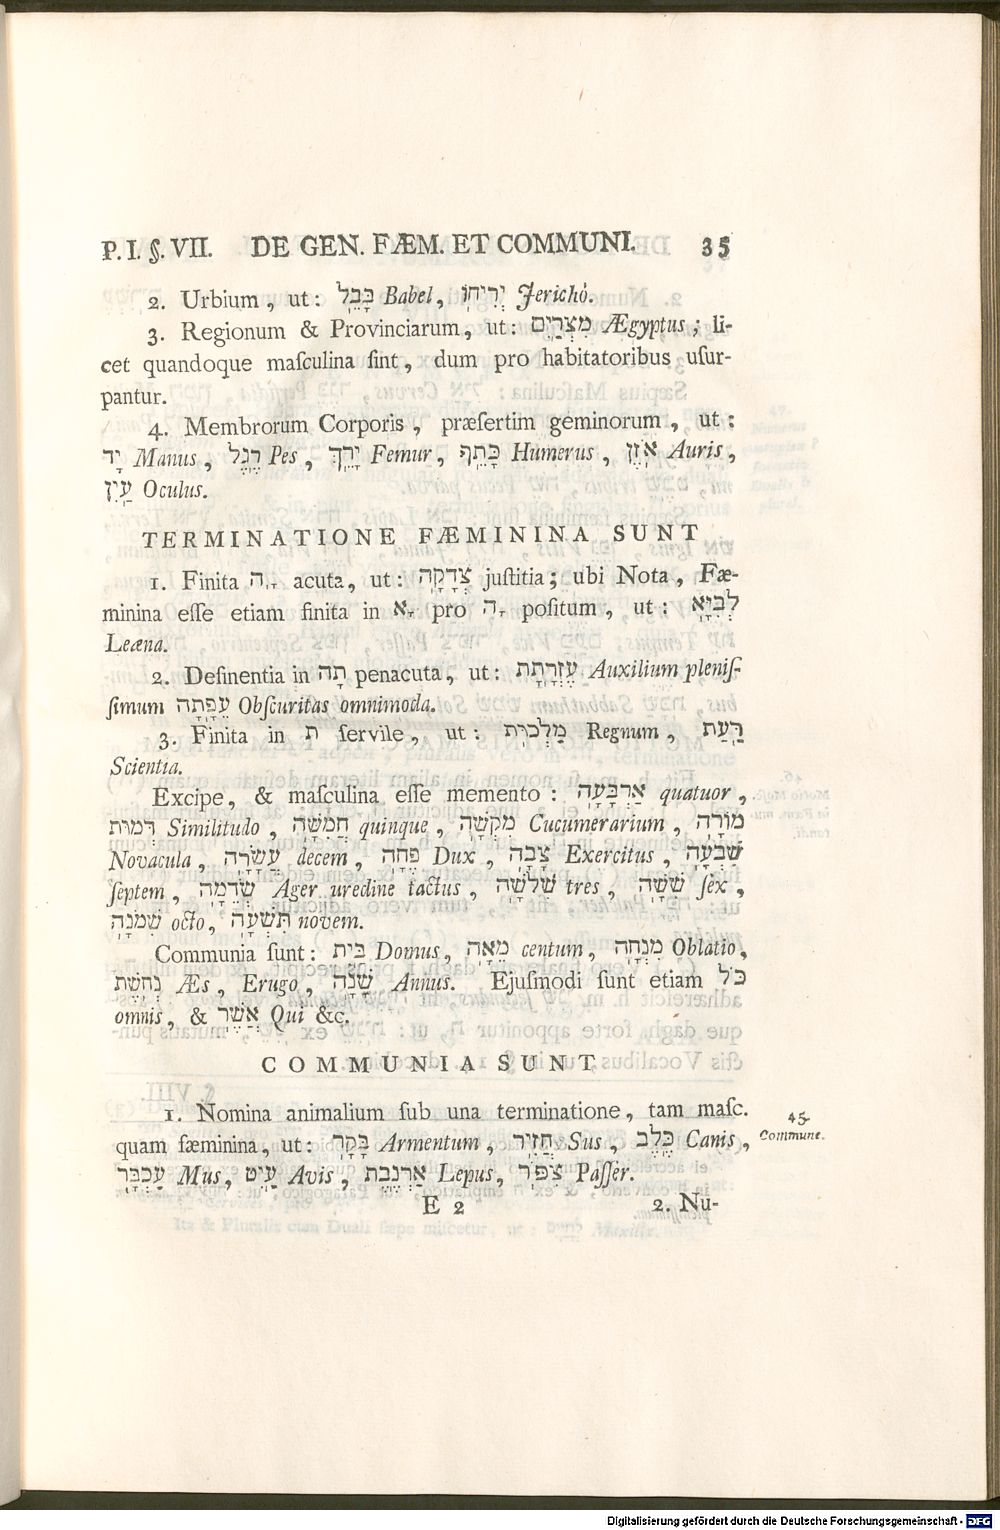 P. I. §. VII. DE GEN. FÆM. ET COMMUNI. 35
2. Urbium, ut: בָּבֶל Babel, יְרִיחוֹ Jerichò.
3. Regionum & Provinciarum, ut: מִצְרַיִם Ægyptus; li-
cet quandoque maſculina ſint, dum pro habitatoribus uſur-
pantur.
4. Membrorum Corporis, præſertim geminorum, ut:
יָד Manus, רֶגֶל Pes, יָרֵךְ Femur, כָּתֵף Humerus, אֹזֶן Auris,
עַיִן Oculus.
TERMINATIONE FÆMININA SUNT
1. Finita ־ָה acuta, ut: צְדָקָה juſtitia; ubi Nota, Fæ-
minina eſſe etiam finita in ־ָא pro ־ָה poſitum, ut: לְבִיָּא
Leæna.
2. Deſinentia in תָה penacuta, ut: עֶזְרָתָת Auxilium pleniſ-
ſimum עֵפָתָה Obſcuritas omnimoda.
3. Finita in ת ſervile, ut: מַלְכוּת Regnum, דַּעַת
Scientia.
Excipe, & maſculina eſſe memento: אַרְבָּעָה quatuor,
דְּמוּת Similitudo, חֲמִשָּׁה quinque, מִקְשָׁה Cucumerarium, מוֹרָה
Novacula, עֲשָׂרָה decem, פֶּחָה Dux, צָבָה Exercitus, שִׁבְעָה
ſeptem, שְׁדֵמָה Ager uredine tactus, שְׁלֹשָׁה tres, שִׁשָּׁה ſex,
שְׁמֹנָה octo, תִּשְׁעָה novem.
Communia ſunt: בַּיִת Domus, מֵאָה centum, מִנְחָה Oblatio,
נְחֹשֶׁת Æs, Erugo, שָׁנָה Annus. Ejuſmodi ſunt etiam כֹּל
omnis, & אֲשֶׁר Qui &c.
COMMUNIA SUNT
1. Nomina animalium ſub una terminatione, tam maſc.
quam fæminina, ut: בָּקָר Armentum, חֲזִיר Sus, כֶּלֶב Canis,
עַכְבָּר Mus, עַיִט Avis, אַרְנֶבֶת Lepus, צִפֹּר Paſſer.
45.
Commune.
E 2 2. Nu-
Digitalisierung gefördert durch die Deutsche Forschungsgemeinschaft - DFG